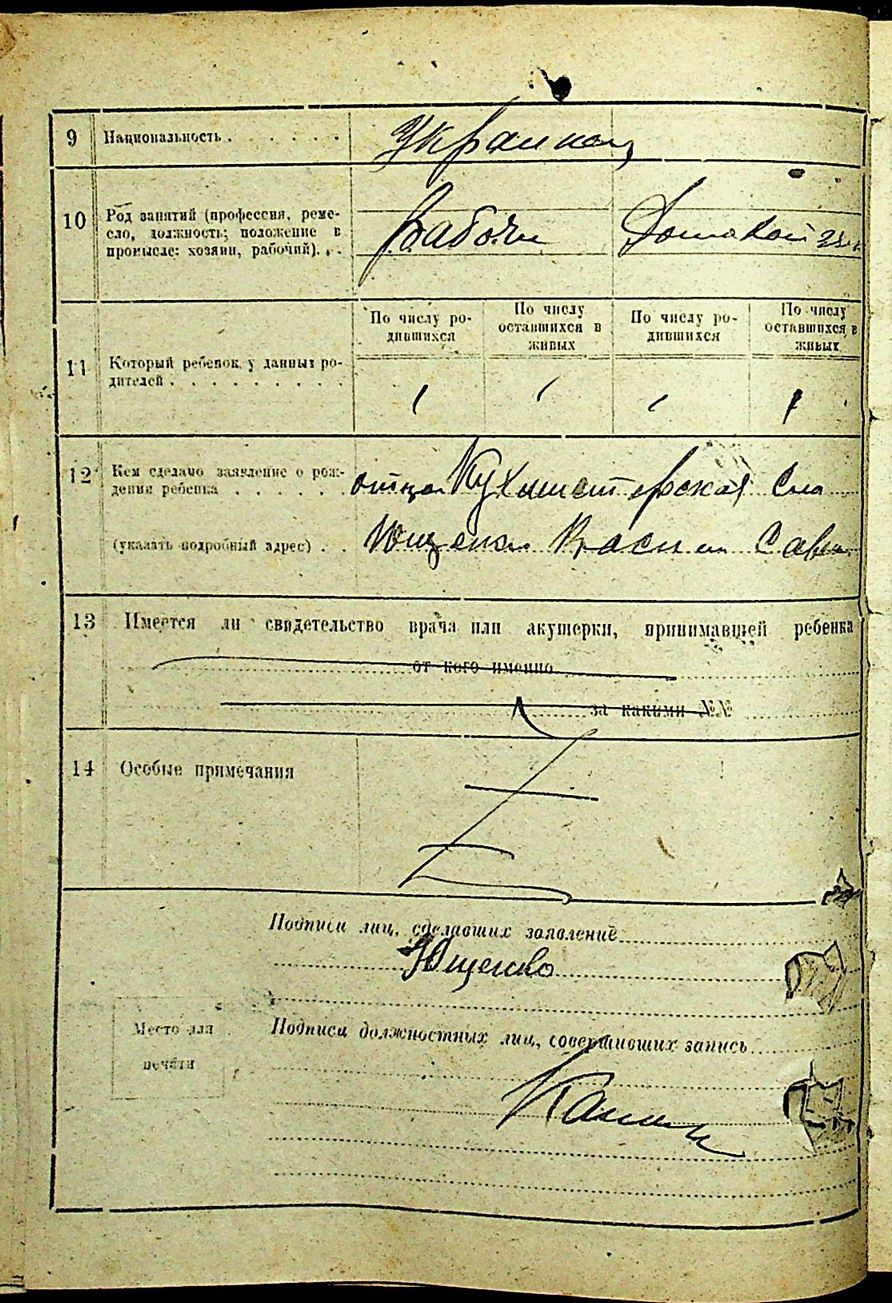 9 Национальность . . . . . .
Украинец
10 Род занятий (профессия, реме-
сло, должность; положение в
промысле: хозяин, рабочий). . .
Рабочи Домахоз
11 Который ребенок у данных ро-
дителей . . . . . . . . .
По числу ро-
дившихся
По числу
оставшихся в
живых
По числу ро-
дившихся
По числу
оставшихся в
живых
1 1 1 1
12 Кем сделано заявление о рож-
дении ребенка . . . . . .
отца Кухмистерская Сло
(указать подробный адрес) . .
Ющенко
13 Имеется ли свидетельство врача или акушерки, принимавшей ребенка
от кого именно
за какими №№
14 Особые примечания
Подписи лиц, сделавших заявление
Ющенко
Место для
печати
Подписи должностных лиц, совершивших запись